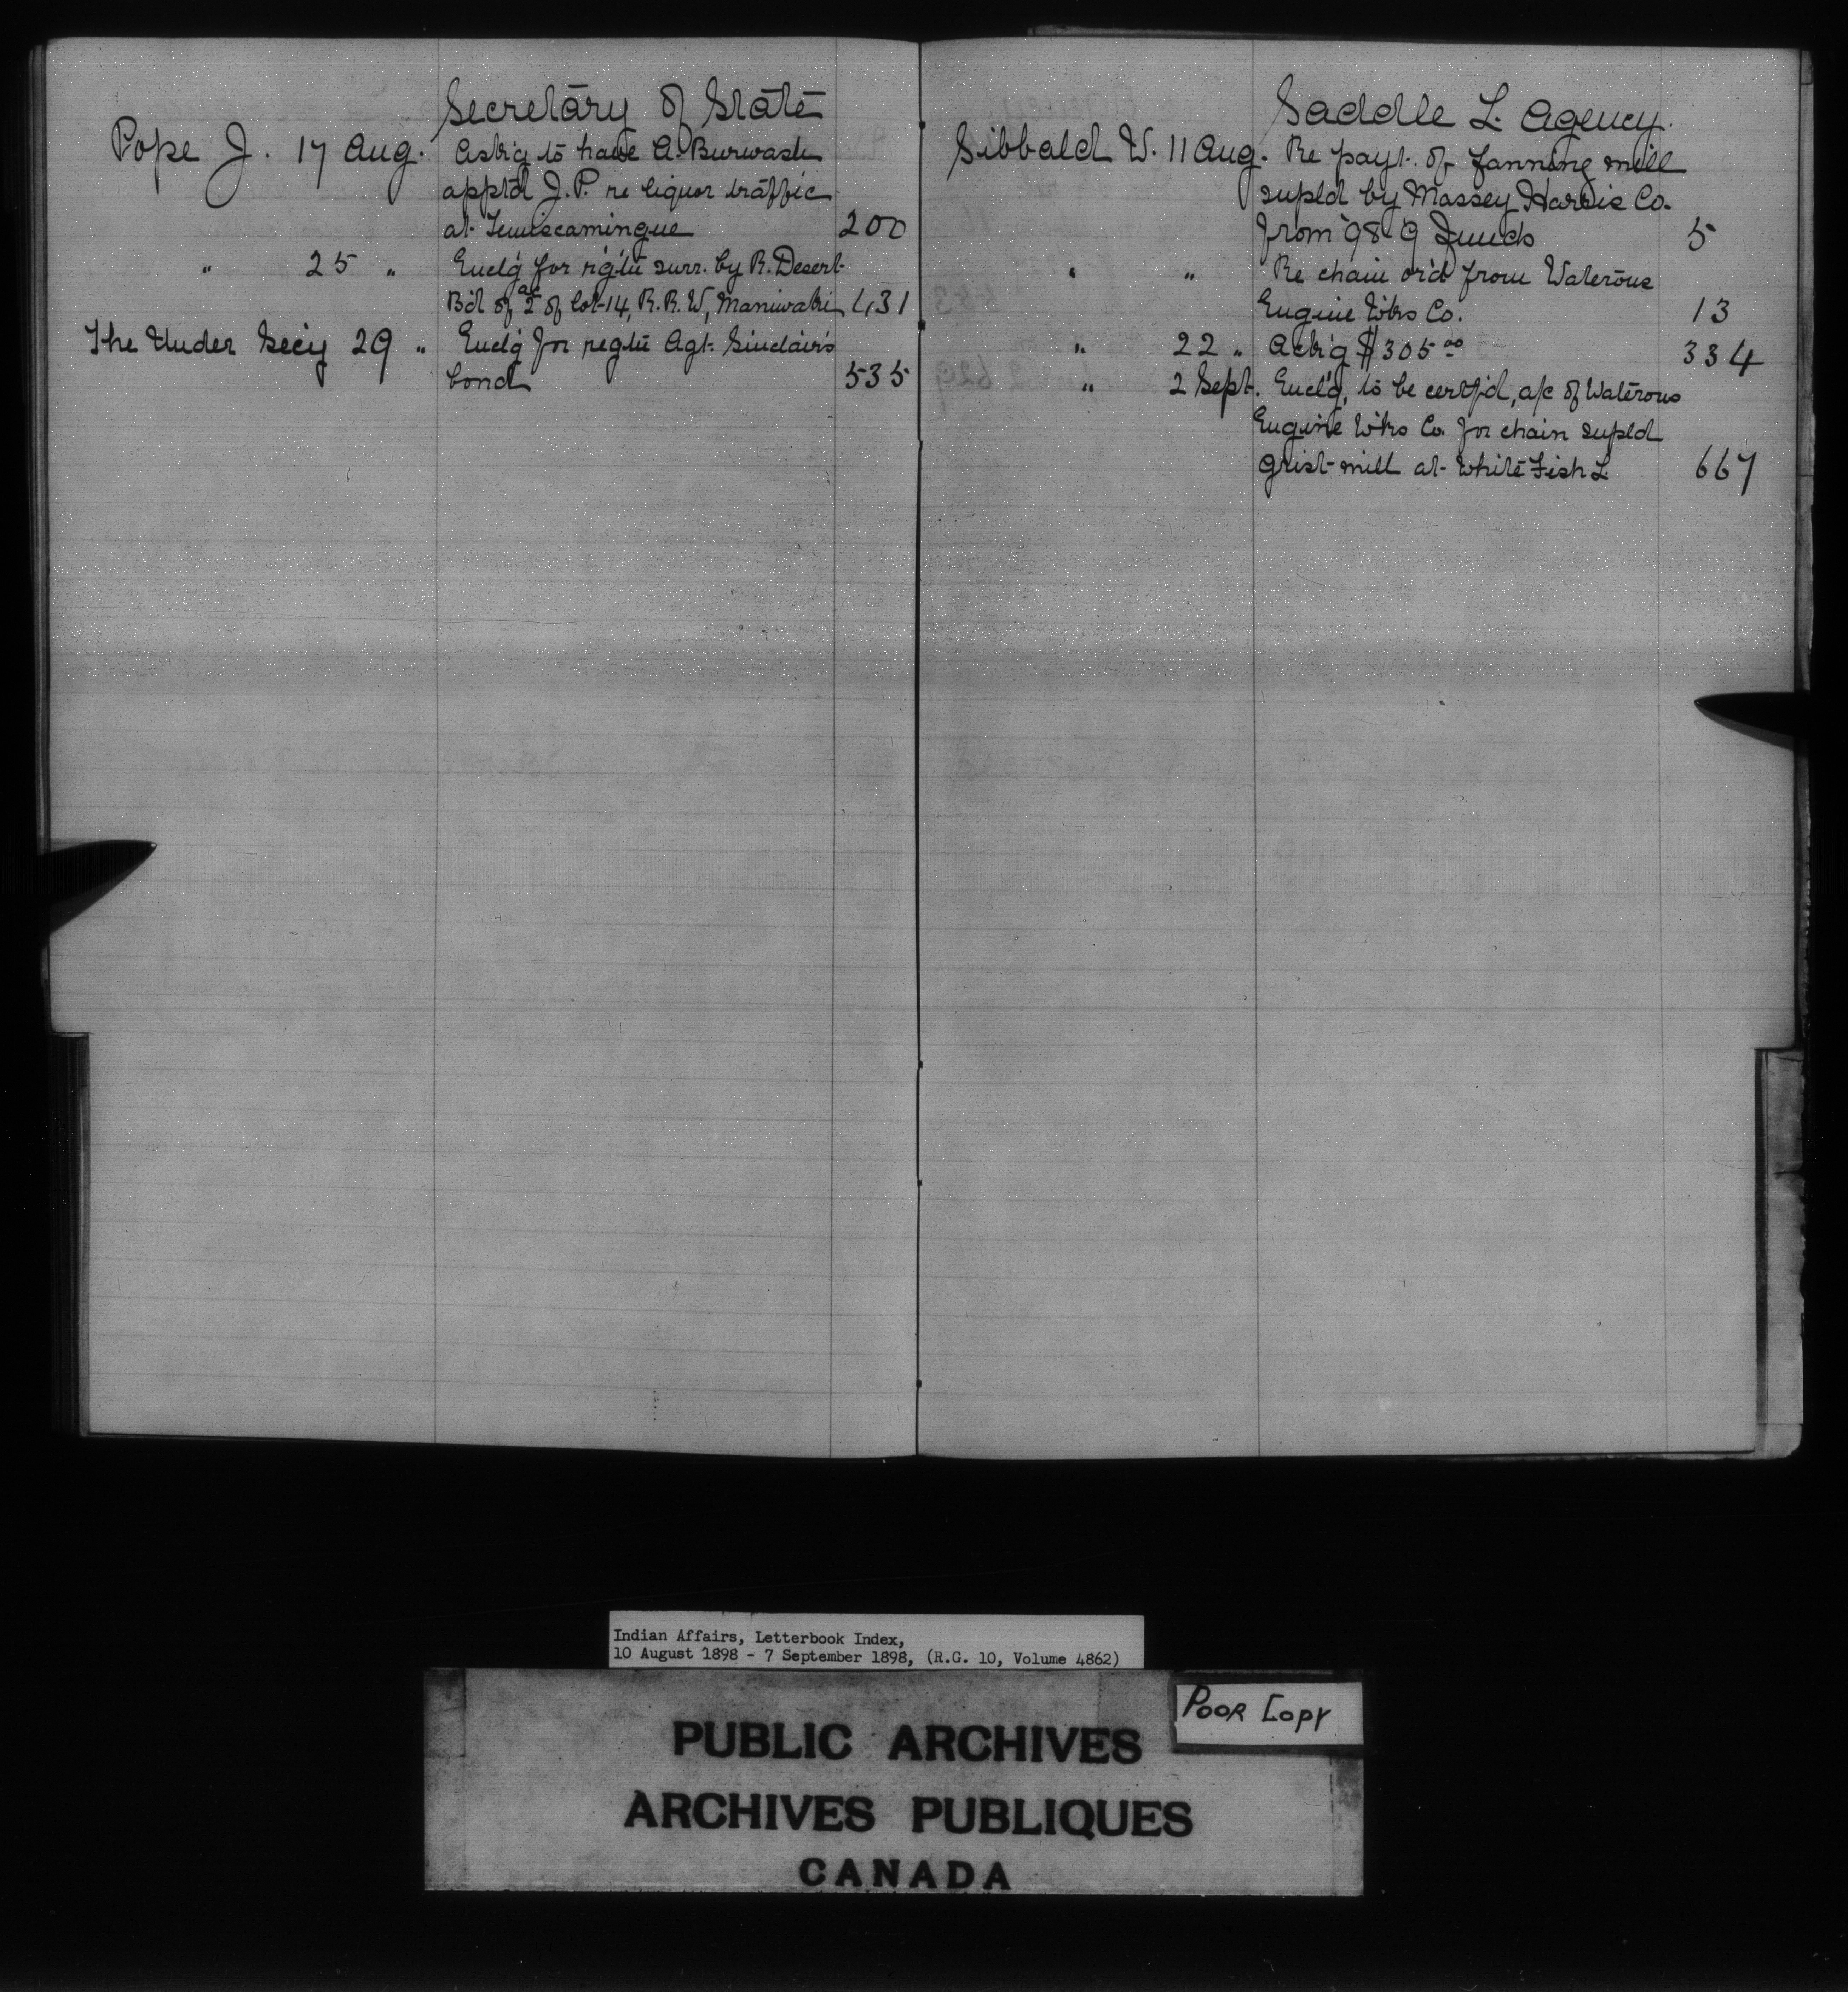 Secretary of State
Pope J. 17 Aug. Ask'g to have A. Burwash
appt'd J.P. re liquor traffic
at Temiscamingue 200
" 25 " Encl'g for rig'tn surr. by R. Desert
B'd of 2 ac of lot 14, R.R.W, Maniwaki 431
The Under Sec'y 29 " Encl'g for regt'n Agt. Sinclair's
bond 535
Saddle L. Agency.
Sibbald W. 11 Aug. Re payt. of fanning mill
supld by Massey Harris Co.
from 98-9 Funds 5
" " Re chain or'd from Waterous
Engine Wks Co. 13
" 22 " Ack'g $305.00 334
" 2 Sept. Encl'g, to be certf'd, a/c of Waterous
Engine Wks Co. for chain supld
grist mill at White Fish L. 667
Indian Affairs, Letterbook Index,
10 August 1898 - 7 September 1898, (R.G. 10, Volume 4862)
POOR COPY
PUBLIC ARCHIVES
ARCHIVES PUBLIQUES
CANADA